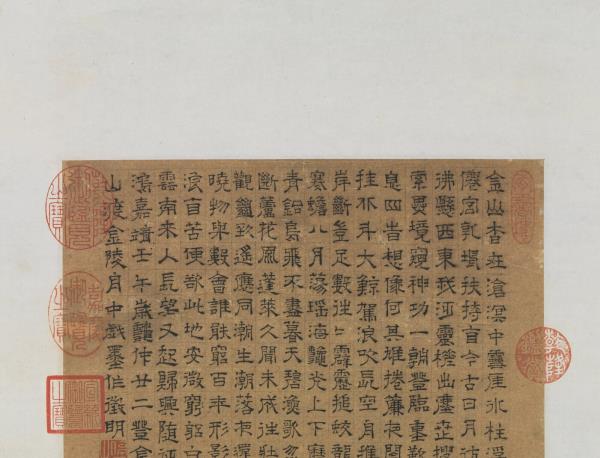 金山杳在滄溟中雪崖冰柱浮
僊宮乾坤扶持自今古日月彷
佛懸西東我泛靈槎出塵世搜
索異境窺神功一朝登臨重歎
息四時想像何其雄捲簾夜閣
挂北斗大鯨駕浪吹長空舟摧
岸斷豈足數往往霹靂搥蛟龍
寒蟾八月蕩瑤海龝光上下磨
青銅鳥飛不盡暮天碧漁歌忽
斷蘆花風蓬萊久聞未成往壯
觀絕致遙應同潮生潮落夜還
曉物與數會誰能窮百年形影
浪自苦便欲此地安微躬白
雲南來入長望又起歸興隨征
鴻嘉靖壬午歲龝仲廿二登金
山渡金陵舟中戲墨作徵明